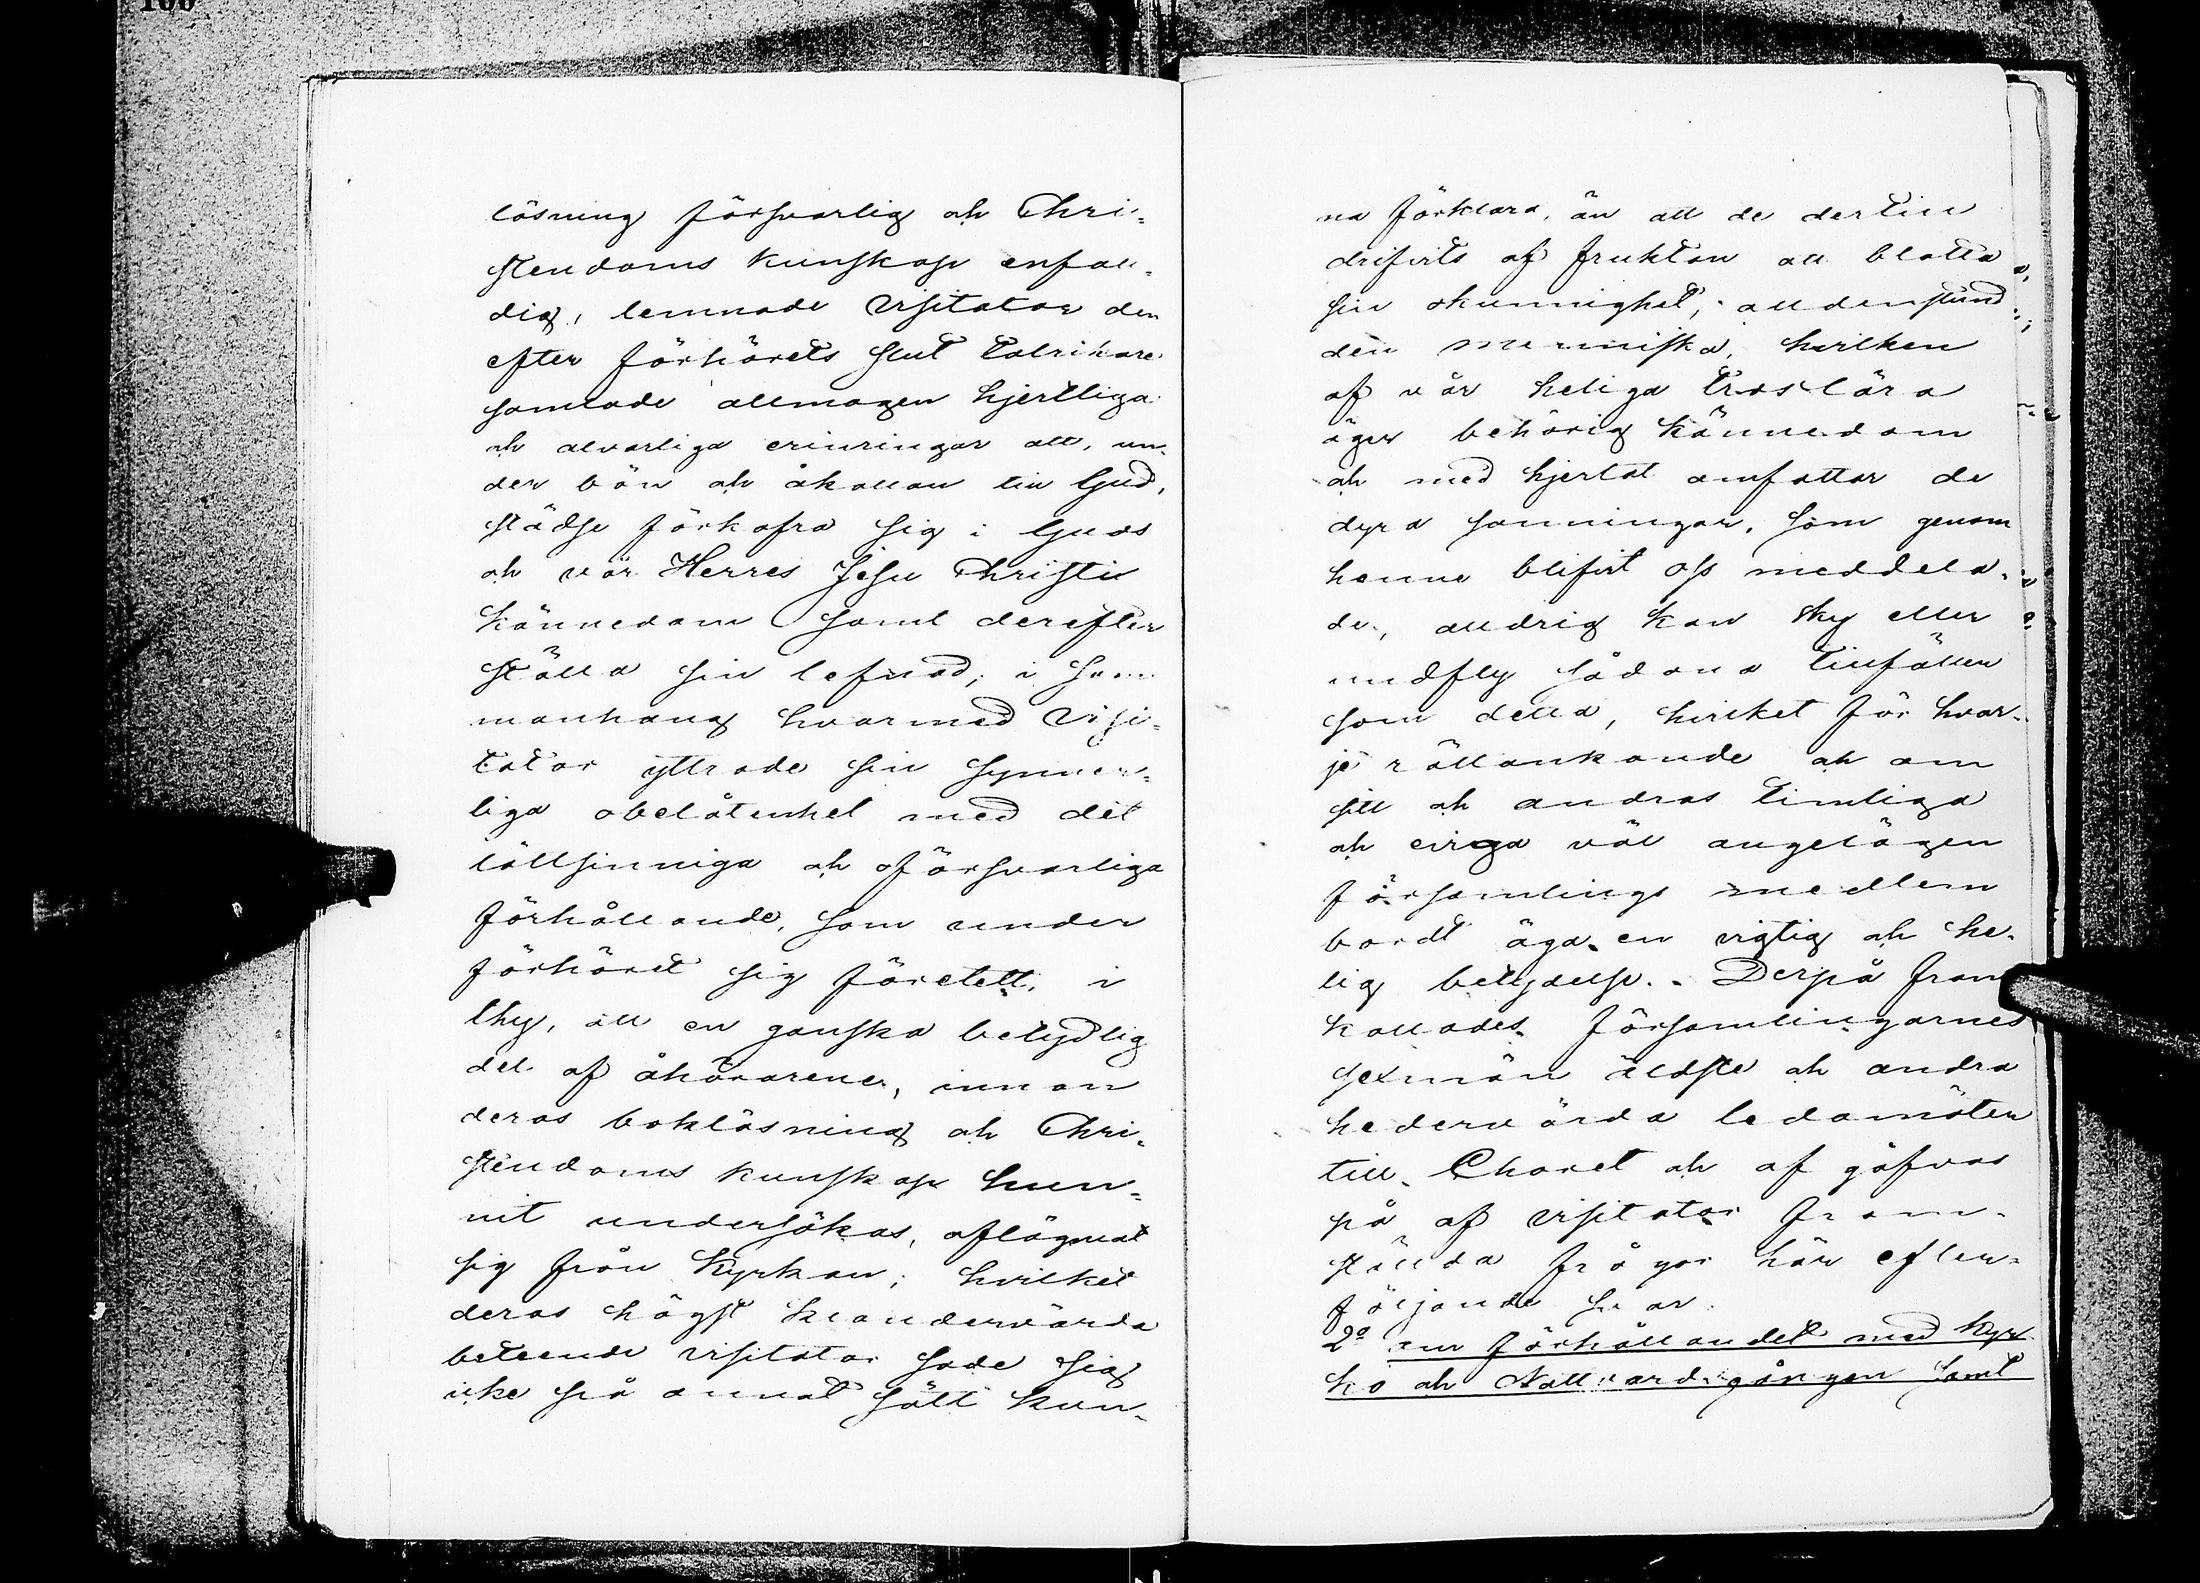 100
läsning försvarlig och Chri-
stendoms kunskap enfal-
dig, lemnade Visitator den
efter förhörets slut talrikare
samlade allmogen hjertliga
och alvarliga erinringar att, un-
der bön och åkallan till Gud,
städse förkofra sig i Guds
och vår Herres Jesu Christi
kännedom samt derefter
ställa sin lefnad; i sam
manhang hvarmed Visi-
tator yttrade sin synner-
liga obelåtenhet med det
lättsinniga och oförsvarliga
förhållande, som under
förhöret sig företett, i
thy, att en ganska betydlig
del af åhörarene, innan
deras bokläsning och Chri-
stendoms kunskap hun-
nit undersökas, aflägnat
sig från Kyrkan; hvilket
deras högst klandervärda
beteende Visitator sade sig
icke på annat sätt kun-
na förklara, än att de dertill
drifvits af fruktan att blotta
sin okunnighet, alldenstund
den menniska, hvilken
af vår heliga troslära
äger behörig kännedom
och med hjertat omfattar de
dyra sanningar, som genom
henne blifvit oss meddela-
de, alldrig kan sky eller
undfly sådana tillfällen
som detta, hvilket för hvar-
je rättänkande och om
sitt och andras timliga
och eviga väl angelägen
församlings medlem
bordt äga en vigtig och he-
lig betydelse. - Derpå fram
kallades församlingarnes
sexmän äldste och andra
hedervärda ledamöter
till Choret och af gåfvos
på af Visitator fram-
stälda frågor här efter-
följande svar.
2o om förhållandet med Kyr
ko och Nattvardsgången samt